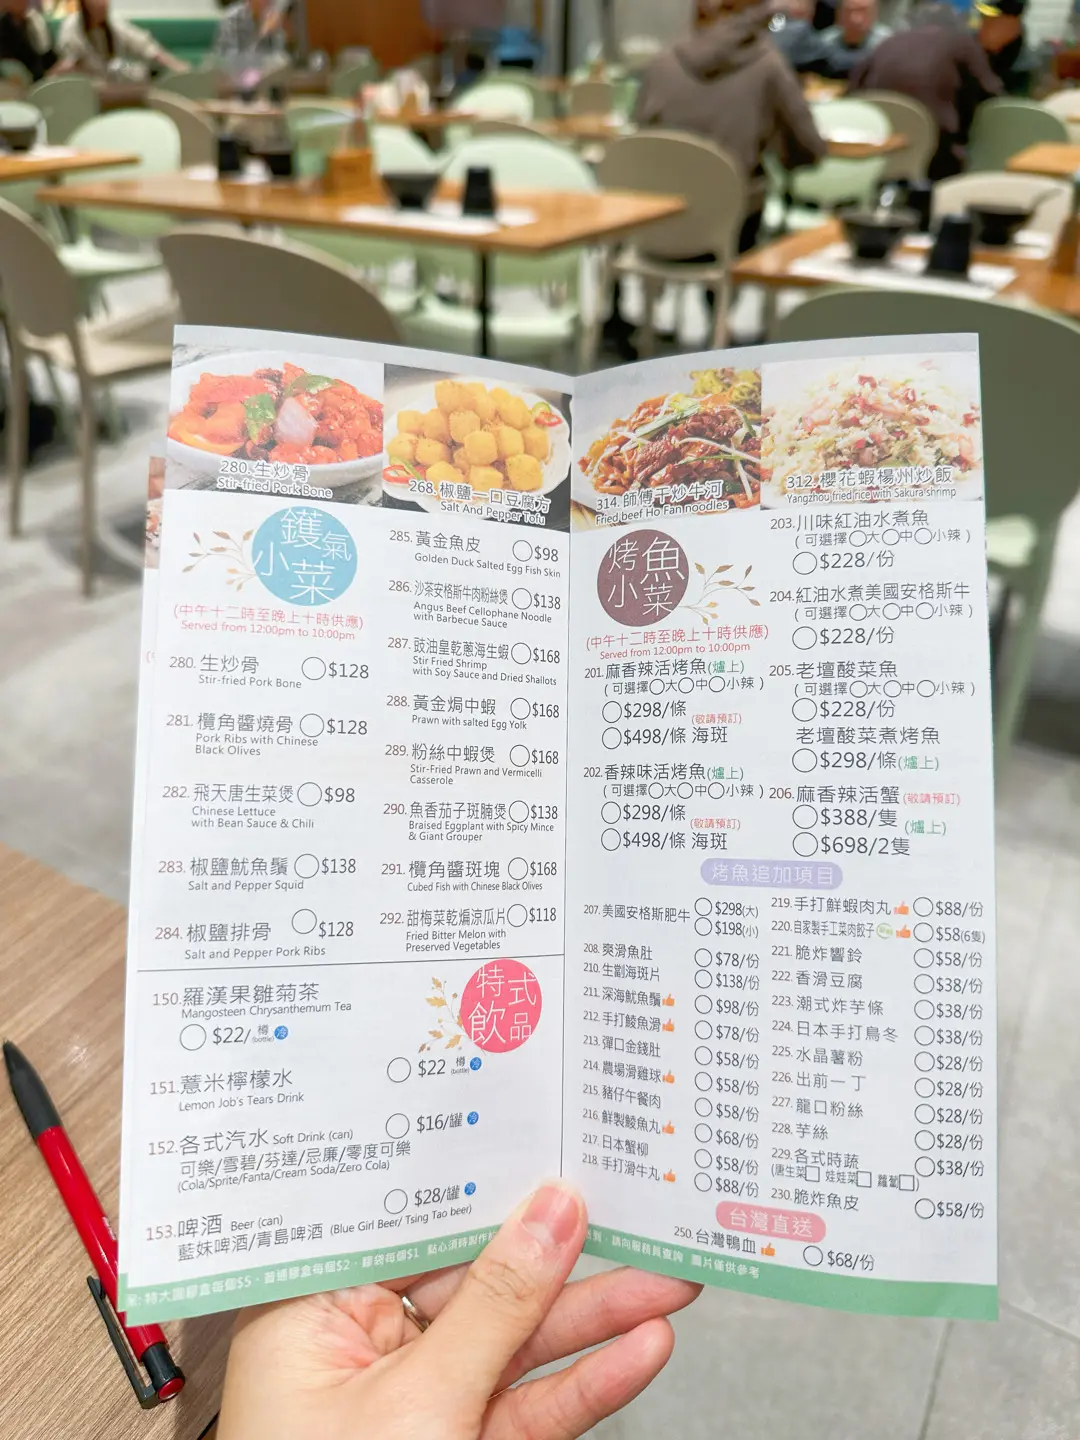 280.生炒骨
Stir-fried Pork Bone
268.椒鹽一口豆腐方
Salt And Pepper Tofu
314.師傅干炒牛河
Fried beef Ho Fan noodles
312.櫻花蝦楊州炒飯
Yangzhou fried rice with Sakura shrimp
鑊氣
小菜
(中午十二時至晚上十時供應)
Served from 12:00pm to 10:00pm
280.生炒骨 $128
Stir-fried Pork Bone
281.欖角醬燒骨 $128
Pork Ribs with Chinese
Black Olives
282.飛天唐生菜煲 $98
Chinese Lettuce
with Bean Sauce & Chili
283.椒鹽魷魚鬚 $138
Salt and Pepper Squid
284.椒鹽排骨 $128
Salt and Pepper Pork Ribs
285.黃金魚皮 $98
Golden Duck Salted Egg Fish Skin
286.沙茶安格斯牛肉粉絲煲 $138
Angus Beef Cellophane Noodle
with Barbecue Sauce
287.豉油皇乾蔥海生蝦 $168
Stir Fried Shrimp
with Soy Sauce and Dried Shallots
288.黃金焗中蝦 $168
Prawn with salted Egg Yolk
289.粉絲中蝦煲 $168
Stir-Fried Prawn and Vermicelli
Casserole
290.魚香茄子斑腩煲 $138
Braised Eggplant with Spicy Mince
& Giant Grouper
291.欖角醬斑塊 $168
Cubed Fish with Chinese Black Olives
292.甜梅菜乾煸涼瓜片 $118
Fried Bitter Melon with
Preserved Vegetables
特式
飲品
150.羅漢果雛菊茶
Mangosteen Chrysanthemum Tea
$22/樽(bottle) 冷
151.薏米檸檬水
Lemon Job's Tears Drink
$22 樽(bottle) 冷
152.各式汽水 Soft Drink (can) $16/罐 冷
可樂/雪碧/芬達/忌廉/零度可樂
(Cola/Sprite/Fanta/Cream Soda/Zero Cola)
$28/罐 冷
153.啤酒 Beer (can)
藍妹啤酒/青島啤酒 (Blue Girl Beer/ Tsing Tao beer)
烤魚
小菜
(中午十二時至晚上十時供應)
Served from 12:00pm to 10:00pm
201.麻香辣活烤魚(爐上)
(可選擇○大○中○小辣)
$298/條 (敬請預訂)
$498/條 海斑
202.香辣味活烤魚(爐上)
(可選擇○大○中○小辣)
$298/條 (敬請預訂)
$498/條 海斑
203.川味紅油水煮魚
(可選擇○大○中○小辣)
$228/份
204.紅油水煮美國安格斯牛
(可選擇○大○中○小辣)
$228/份
205.老壇酸菜魚
(可選擇○大○中○小辣)
$228/份
老壇酸菜煮烤魚
$298/條(爐上)
206.麻香辣活蟹(敬請預訂)
$388/隻 (爐上)
$698/2隻
烤魚追加項目
207.美國安格斯肥牛 $298(大)
$198(小)
208.爽滑魚肚 $78/份
210.生劏海斑片 $138/份
211.深海魷魚鬚 $98/份
212.手打鯪魚滑 $78/份
213.彈口金錢肚 $58/份
214.農場滑雞球 $58/份
215.豬仔午餐肉 $58/份
216.鮮製鯪魚丸 $68/份
217.日本蟹柳 $58/份
218.手打滑牛丸 $88/份
219.手打鮮蝦肉丸 $88/份
220.自家製手工菜肉餃子 $58(6隻)
221.脆炸響鈴 $58/份
222.香滑豆腐 $38/份
223.潮式炸芋條 $38/份
224.日本手打烏冬 $38/份
225.水晶薯粉 $28/份
226.出前一丁 $28/份
227.龍口粉絲 $28/份
228.芋絲 $28/份
229.各式時蔬 $38/份
(唐生菜□ 娃娃菜□ 蘿蔔□)
230.脆炸魚皮 $58/份
台灣直送
250.台灣鴨血 $68/份
特大圓膠盒每個$5、普通膠盒每個$2、膠袋每個$1 點心須時製作
請向服務員查詢 圖片僅供參考